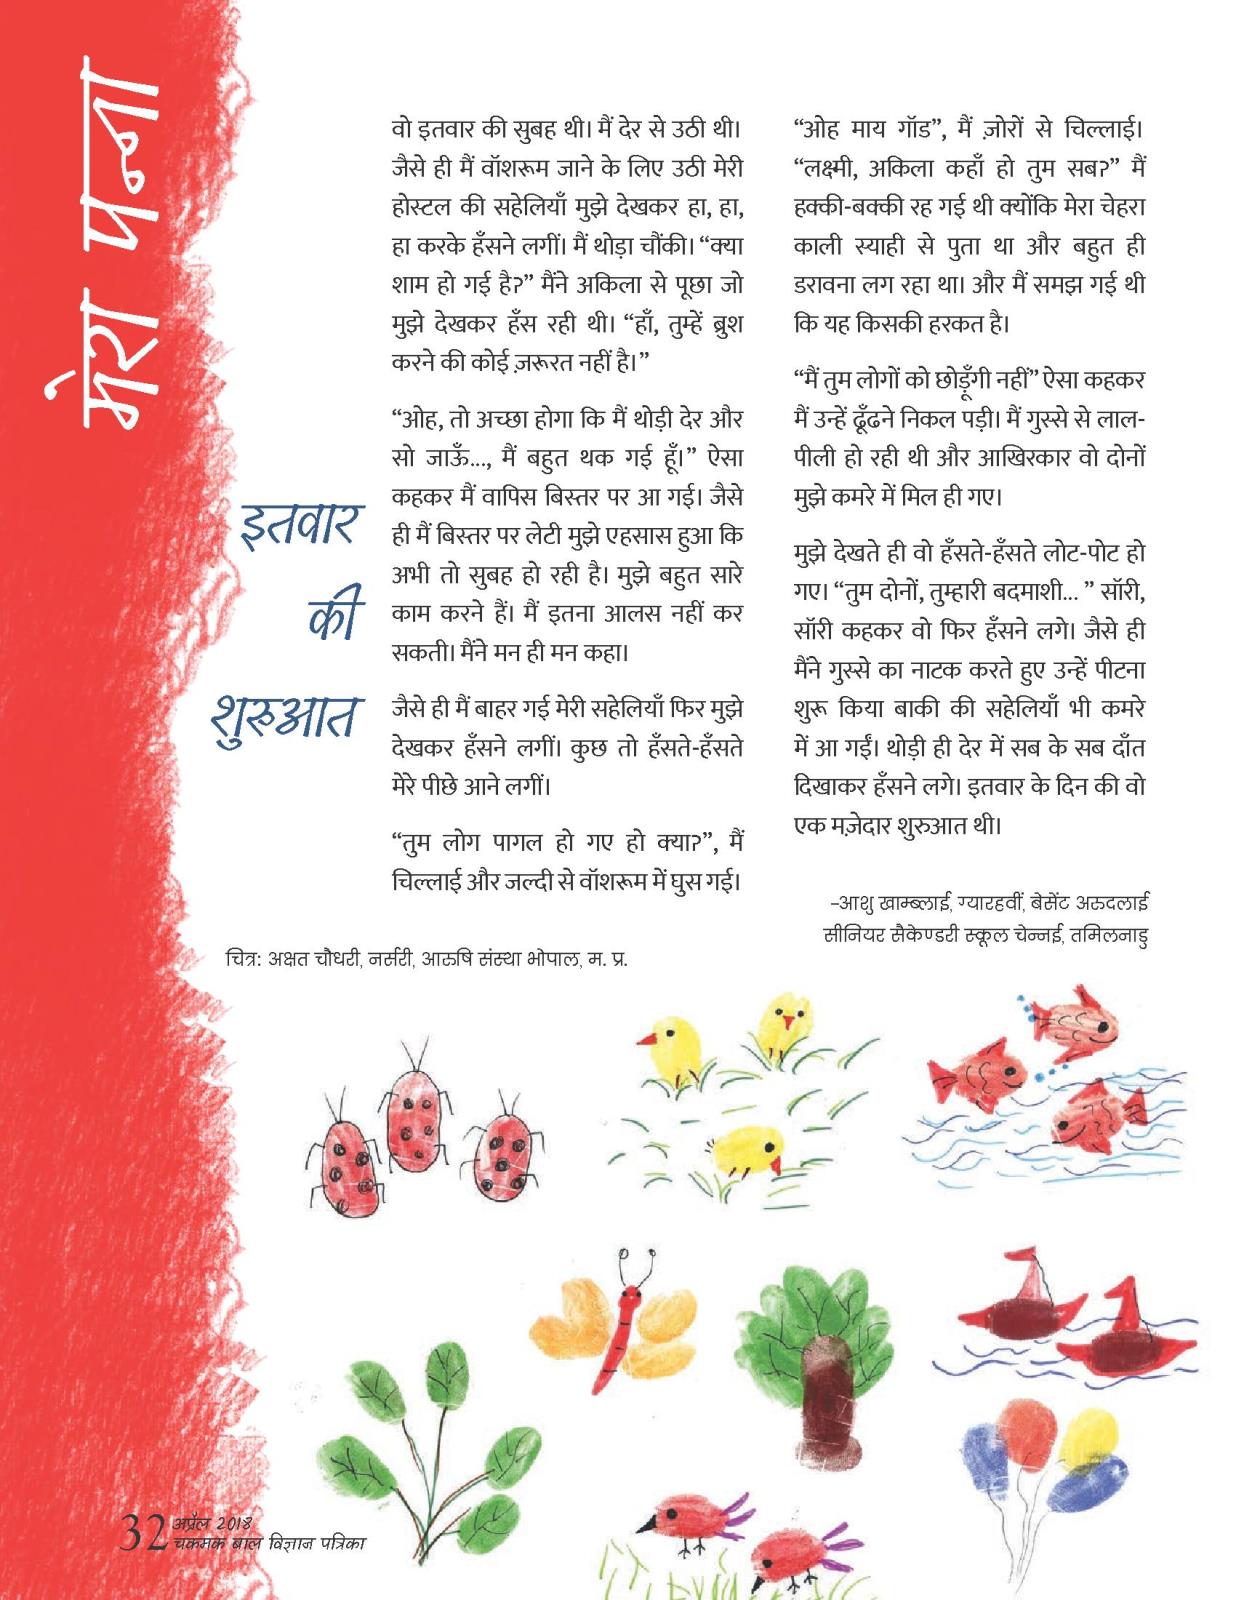 मेरा पन्ना
इतवार
की
शुरुआत
वो इतवार की सुबह थी। मैं देर से उठी थी।
जैसे ही मैं वॉशरूम जाने के लिए उठी मेरी
होस्टल की सहेलियाँ मुझे देखकर हा, हा,
हा करके हँसने लगीं। मैं थोड़ा चौंकी। “क्या
शाम हो गई है?” मैंने अकिला से पूछा जो
मुझे देखकर हँस रही थी। “हाँ, तुम्हें ब्रुश
करने की कोई ज़रूरत नहीं है।”
“ओह, तो अच्छा होगा कि मैं थोड़ी देर और
सो जाऊँ..., मैं बहुत थक गई हूँ।” ऐसा
कहकर मैं वापिस बिस्तर पर आ गई। जैसे
ही मैं बिस्तर पर लेटी मुझे एहसास हुआ कि
अभी तो सुबह हो रही है। मुझे बहुत सारे
काम करने हैं। मैं इतना आलस नहीं कर
सकती। मैंने मन ही मन कहा।
जैसे ही मैं बाहर गई मेरी सहेलियाँ फिर मुझे
देखकर हँसने लगीं। कुछ तो हँसते-हँसते
मेरे पीछे आने लगीं।
“तुम लोग पागल हो गए हो क्या?”, मैं
चिल्लाई और जल्दी से वॉशरूम में घुस गई।
“ओह माय गॉड”, मैं ज़ोरों से चिल्लाई।
“लक्ष्मी, अकिला कहाँ हो तुम सब?” मैं
हक्की-बक्की रह गई थी क्योंकि मेरा चेहरा
काली स्याही से पुता था और बहुत ही
डरावना लग रहा था। और मैं समझ गई थी
कि यह किसकी हरकत है।
“मैं तुम लोगों को छोड़ूँगी नहीं” ऐसा कहकर
मैं उन्हें ढूँढने निकल पड़ी। मैं गुस्से से लाल-
पीली हो रही थी और आखिरकार वो दोनों
मुझे कमरे में मिल ही गए।
मुझे देखते ही वो हँसते-हँसते लोट-पोट हो
गए। “तुम दोनों, तुम्हारी बदमाशी... ” सॉरी,
सॉरी कहकर वो फिर हँसने लगे। जैसे ही
मैंने गुस्से का नाटक करते हुए उन्हें पीटना
शुरू किया बाकी की सहेलियाँ भी कमरे
में आ गईं। थोड़ी ही देर में सब के सब दाँत
दिखाकर हँसने लगे। इतवार के दिन की वो
एक मज़ेदार शुरुआत थी।
–आशु खाम्ब्लाई, ग्यारहवीं, बेसेंट अरुदलाई
सीनियर सैकेण्डरी स्कूल चेन्नई, तमिलनाडु
चित्र: अक्षत चौधरी, नर्सरी, आरुषि संस्था भोपाल, म. प्र.
32 अप्रैल 2018
चकमक बाल विज्ञान पत्रिका